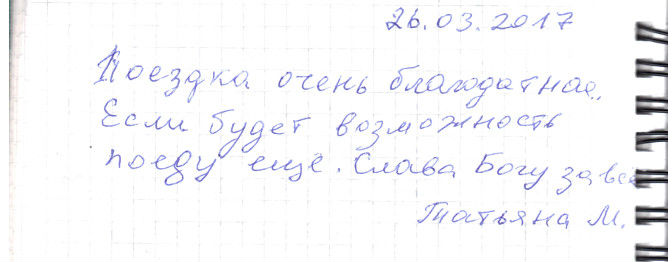 26.03.2017
Поездка очень благодатная.
Если будет возможность
поеду ещё. Слава Богу за всё
Татьяна М.